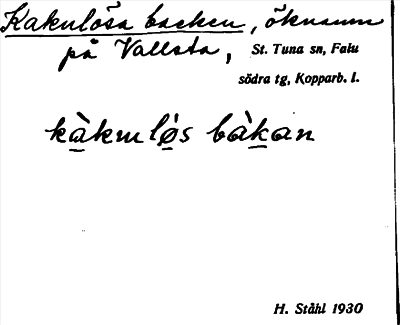 Kakulösa backen, öknamn
på Vallsta, St. Tuna sn, Falu
södra tg, Kopparb. l.
kàkụløs bàkan
H. Ståhl 1930